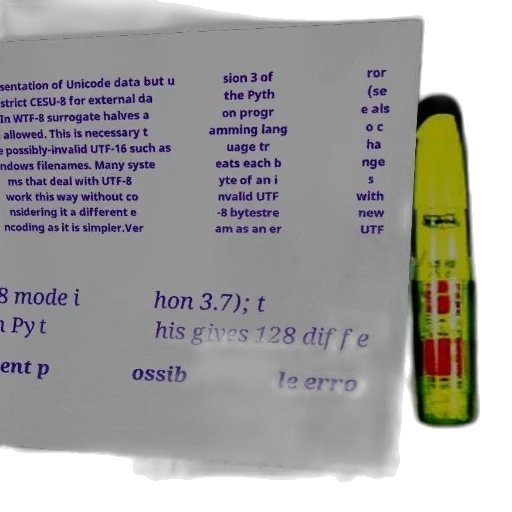 sentation of Unicode data but u
strict CESU-8 for external da
In WTF-8 surrogate halves a
allowed. This is necessary t
possibly-invalid UTF-16 such as
ndows filenames. Many syste
ms that deal with UTF-8
work this way without co
nsidering it a different e
ncoding as it is simpler.Ver
sion 3 of
the Pyth
on progr
amming lang
uage tr
eats each b
yte of an i
nvalid UTF
-8 bytestre
am as an er
ror
(se
e als
o c
ha
nge
s
with
new
UTF
8 mode i
n Pyt
hon 3.7); t
his gives 128 diffe
ent p
ossib
le erro